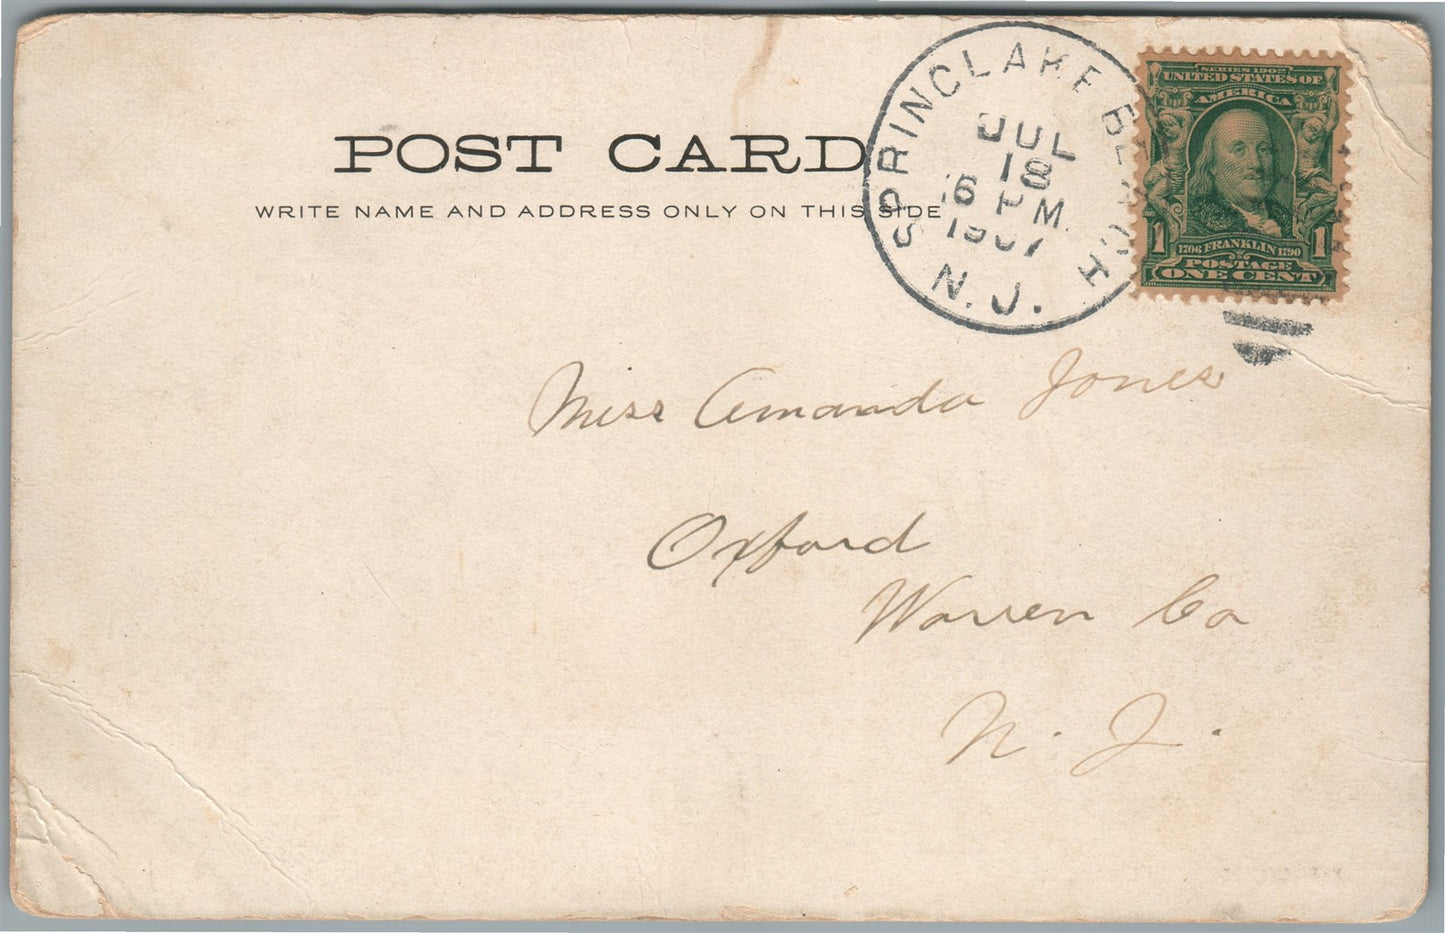 POST CARD
WRITE NAME AND ADDRESS ONLY ON THIS SIDE
SPRING LAKE BEACH
JUL
18
6 PM.
1907
N.J.
SERIES 1902
UNITED STATES OF
AMERICA
1 1706 FRANKLIN 1790 1
POSTAGE
ONE CENT
Miss Amanda Jones
Oxford
Warren Co
N. J.